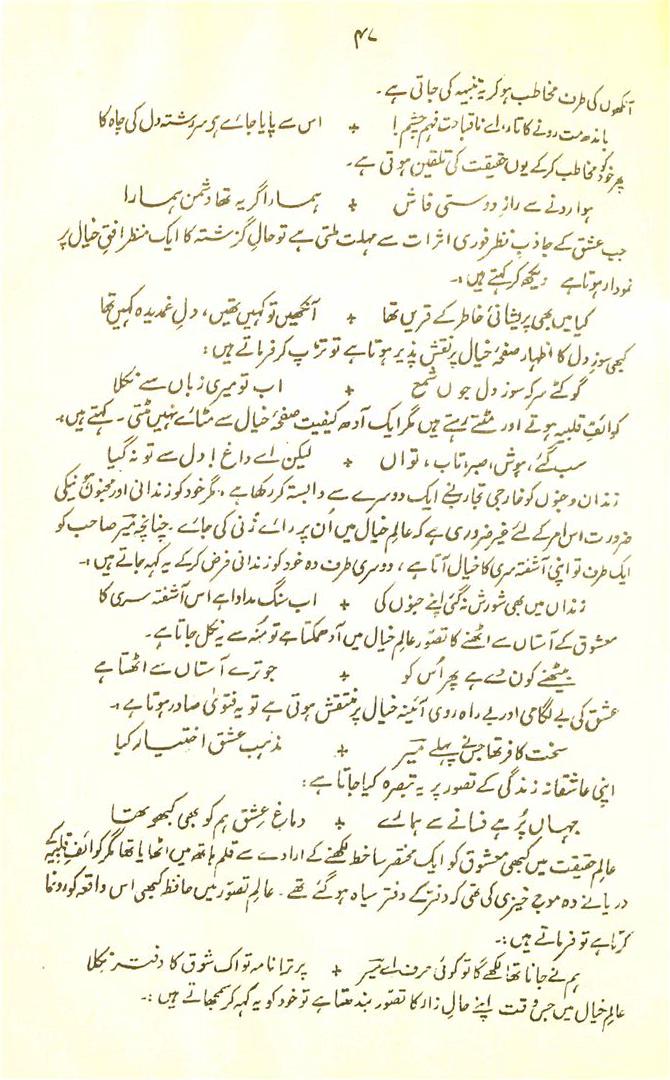 ۴۷
آنکھوں کی طرف مخاطب ہو کر یہ تنبیہ کی جاتی ہے۔
باندھ مت رونے کا تار، اے ناقباحت فہم چشم! ٭ اس سے پایا جائے ہے سررشتہ دل کی چاہ کا
پھر خود کو مخاطب کر کے یوں حقیقت کی تلقین ہوتی ہے۔
ہوا رونے سے رازِ دوستی فاش ٭ ہمارا گریہ تھا دشمن ہمارا
جب عشق کے جاذبِ نظر فوری اثرات سے مہلت ملتی ہے تو حالِ گزشتہ کا ایک منظر افقِ خیال پر
نمودار ہوتا ہے دیکھ کر کہتے ہیں:۔
کیا میں بھی پریشانیِٔ خاطر کے قریں تھا ٭ آنکھیں تو کہیں تھیں، دلِ غمدیدہ کہیں تھا
کبھی سوزِ دل کا اظہار صفحۂ خیال پر نقش پذیر ہوتا ہے تو تڑپ کر فرماتے ہیں:
گو کٹے سر کہ سوز دل جوں شمع ٭ اب تو میری زباں سے نکلا
کوائفِ قلبیہ ہوتے اور مٹتے رہتے ہیں مگر ایک آدھ کیفیت صفحۂ خیال سے مٹائے نہیں مٹتی۔ کہتے ہیں:۔
سب گئے، ہوش، صبر، تاب، تواں ٭ لیکن اے داغ! دل سے تو نہ گیا
زنداں و جنوں کو خارجی تجاربنے ایک دوسرے سے وابستہ کر رکھا ہے، مگر خود کو زندانی اور مجنون ہونیکی
ضرورت اس امر کے لئے غیر ضروری ہے کہ عالمِ خیال میں اُن پر رائے زنی کی جائے۔ چنانچہ میر صاحب کو
ایک طرف تو اپنی آشفتہ سری کا خیال آتا ہے، دوسری طرف وہ خود کو زندانی فرض کر کے یہ کہہ جاتے ہیں:۔
زنداں میں بھی شورش نہ گئی اپنے جنوں کی ٭ اب سنگ مداوا ہے اس آشفتہ سری کا
معشوق کے آستاں سے اٹھنے کا تصوّر عالمِ خیال میں آدھمکتا ہے تو مُنہ سے یہ نکل جاتا ہے۔
بیٹھنے کون دے ہے پھر اُس کو ٭ جو ترے آستاں سے اٹھتا ہے
عشق کی بے لگامی اور بے راہ روی آئینہ خیال پر منتقش ہوتی ہے تو یہ فتویٰ صادر ہوتا ہے:۔
سخت کافر تھا جنے پہلے میر ٭ مذہب عشق اختیار کیا
اپنی عاشقانہ زندگی کے تصور پر یہ تبصرہ کیا جاتا ہے:
جہاں پُر ہے فسانے سے ہمارے ٭ دماغِ عشق ہم کو بھی کبھو تھا
عالمِ حقیقت میں کبھی معشوق کو ایک مختصر سا خط لکھنے کے ارادے سے قلم ہاتھ میں اٹھایا تھا مگر کوائفِ قلبیہ کے
دریا نے وہ موج خیزی کی تھی کہ دفتر کے دفتر سیاہ ہو گئے تھے۔ عالمِ تصوّر میں حافظ کبھی اس واقعہ کو رونما
کرتا ہے تو فرماتے ہیں:۔
ہم نے جانا تھا لکھے گا تو کوئی حرف اے میر ٭ پر ترا نامہ تو اک شوق کا دفتر نکلا
عالمِ خیال میں جس وقت اپنے حالِ زار کا تصور بندھتا ہے تو خود کو یہ کہہ کر سمجھاتے ہیں:۔